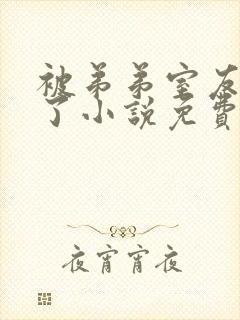 被弟弟室友
了小説免費
夜宵宵夜